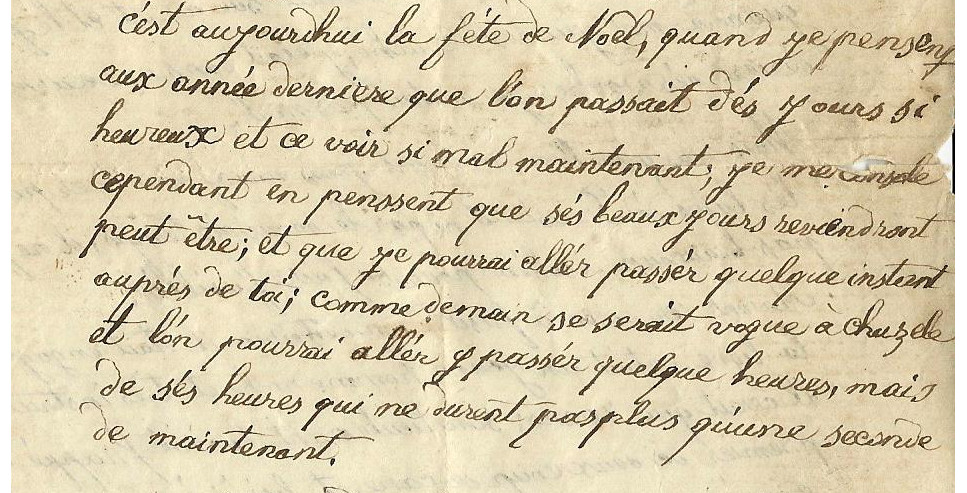 c'ést aujourdhui la féte de Noël, quand je pensent
aux année derniere que l'on passait dés jours si
heureux et ce voir si mal maintenant; je me console
cependant en penssent que sés beaux jours reviendront
peut être; et que je pourrai allér passér quelque instent
auprés de toi; comme demain se serait vogue à Chuzelle
et l'on pourrai allér y passér quelque heures, mais
de sés heures qui ne durent pas plus qu'une seconde
de maintenant.